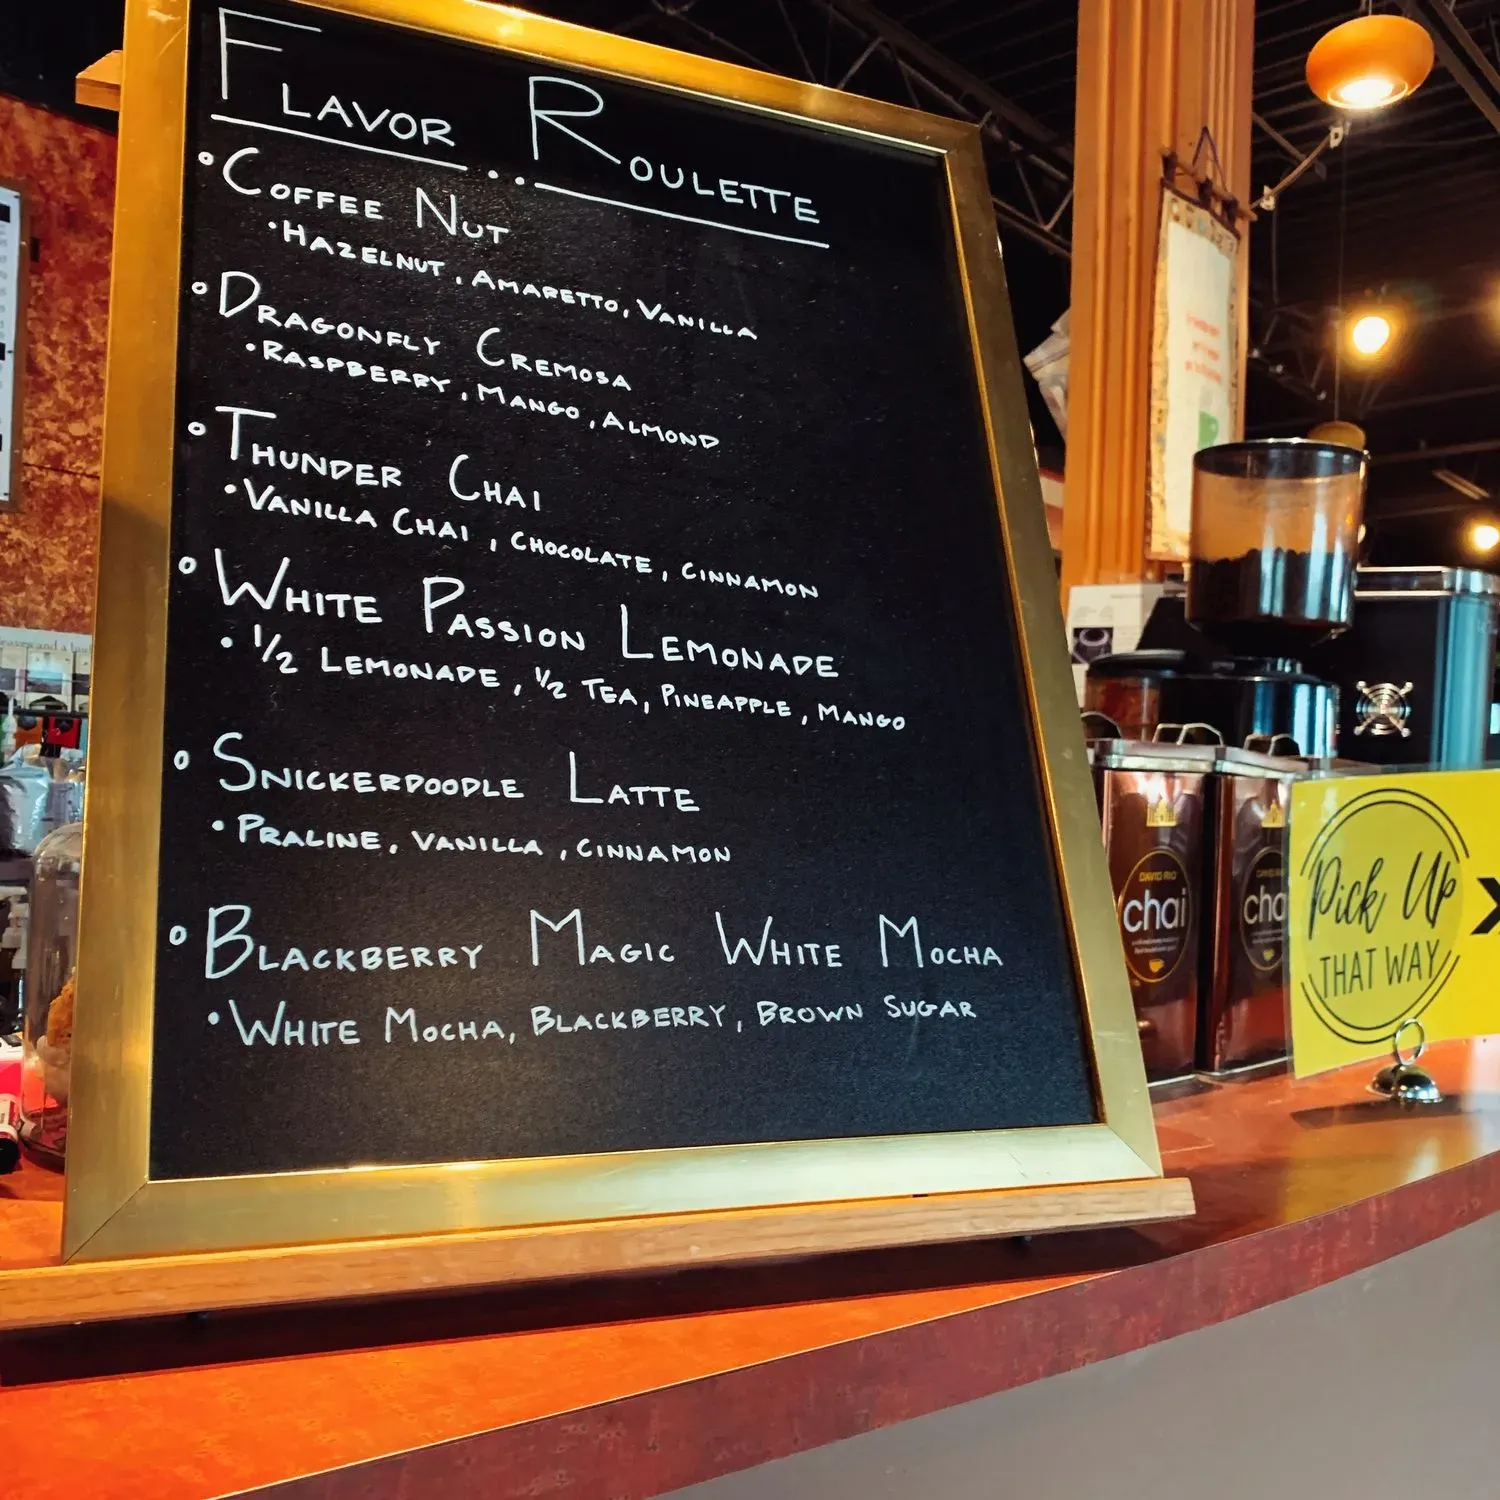 FLAVOR ROULETTE
COFFEE NUT
HAZELNUT, AMARETTO, VANILLA
DRAGONFLY CREMOSA
RASPBERRY, MANGO, ALMOND
THUNDER CHAI
VANILLA CHAI, CHOCOLATE, CINNAMON
WHITE PASSION LEMONADE
1/2 LEMONADE, 1/2 TEA, PINEAPPLE, MANGO
SNICKERDOODLE LATTE
PRALINE, VANILLA, CINNAMON
BLACKBERRY MAGIC WHITE MOCHA
WHITE MOCHA, BLACKBERRY, BROWN SUGAR
DAVID RIO
chai
DAVID RIO
cha
Pick Up
THAT WAY